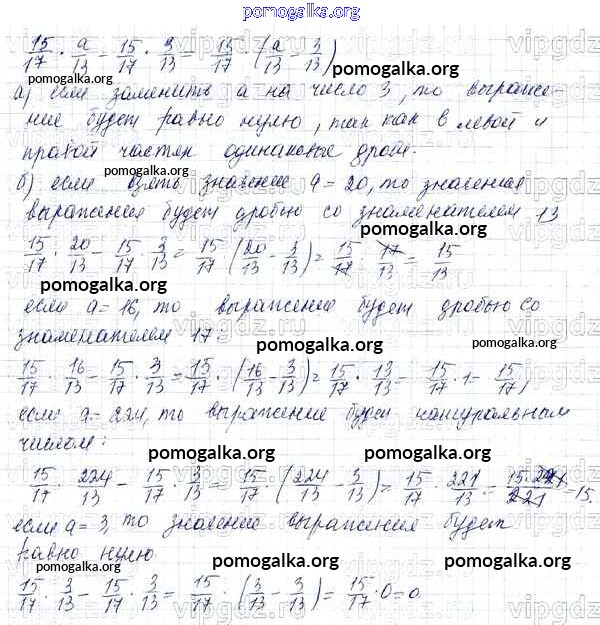 pomogalka.org
15/17 · a/13 - 15/17 · 3/13 = 15/17 · (a/13 - 3/13)
pomogalka.org pomogalka.org
а) если заменить а на число 3, то выраже-
ние будет равно нулю, так как в левой и
правой частях одинаковые дроби.
б) если взять значение a = 20, то значение
выражения будет дробью со знаменателем 13
15/17 · 20/13 - 15/17 · 3/13 = 15/17 · (20/13 - 3/13) = 15/17 · 17/13 = 15/13
pomogalka.org pomogalka.org
если a = 16, то выражение будет дробью со
знаменателем 17:
pomogalka.org
15/17 · 16/13 - 15/17 · 3/13 = 15/17 · (16/13 - 3/13) = 15/17 · 13/13 = 15/17 · 1 = 15/17,
если a = 224, то выражение будет натуральным
числом:
pomogalka.org pomogalka.org
15/17 · 224/13 - 15/17 · 3/13 = 15/17 · (224/13 - 3/13) = 15/17 · 221/13 = 15·221/221 = 15.
если a = 3, то значение выражения будет
равно нулю
pomogalka.org pomogalka.org
15/17 · 3/13 - 15/17 · 3/13 = 15/17 · (3/13 - 3/13) = 15/17 · 0 = 0